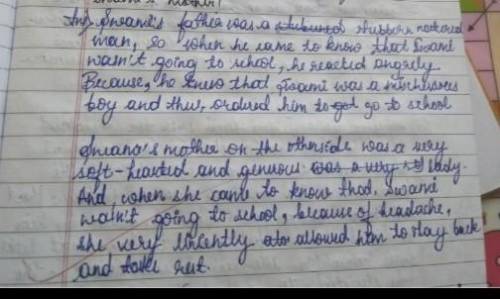 Ans) Swami's father was a stubborn natured
man, so when he came to know that Swami
wasn't going to school, he reacted angrely
Because, he knew that Swami was a mischieves
boy and thus, ordered him to go to school
Swami's mother on the otherside was a very
soft-hearted and genuous lady.
And, when she came to know that, swami
wasn't going to school, because of headache,
she very sincently allowed him to stay back
and take rest.